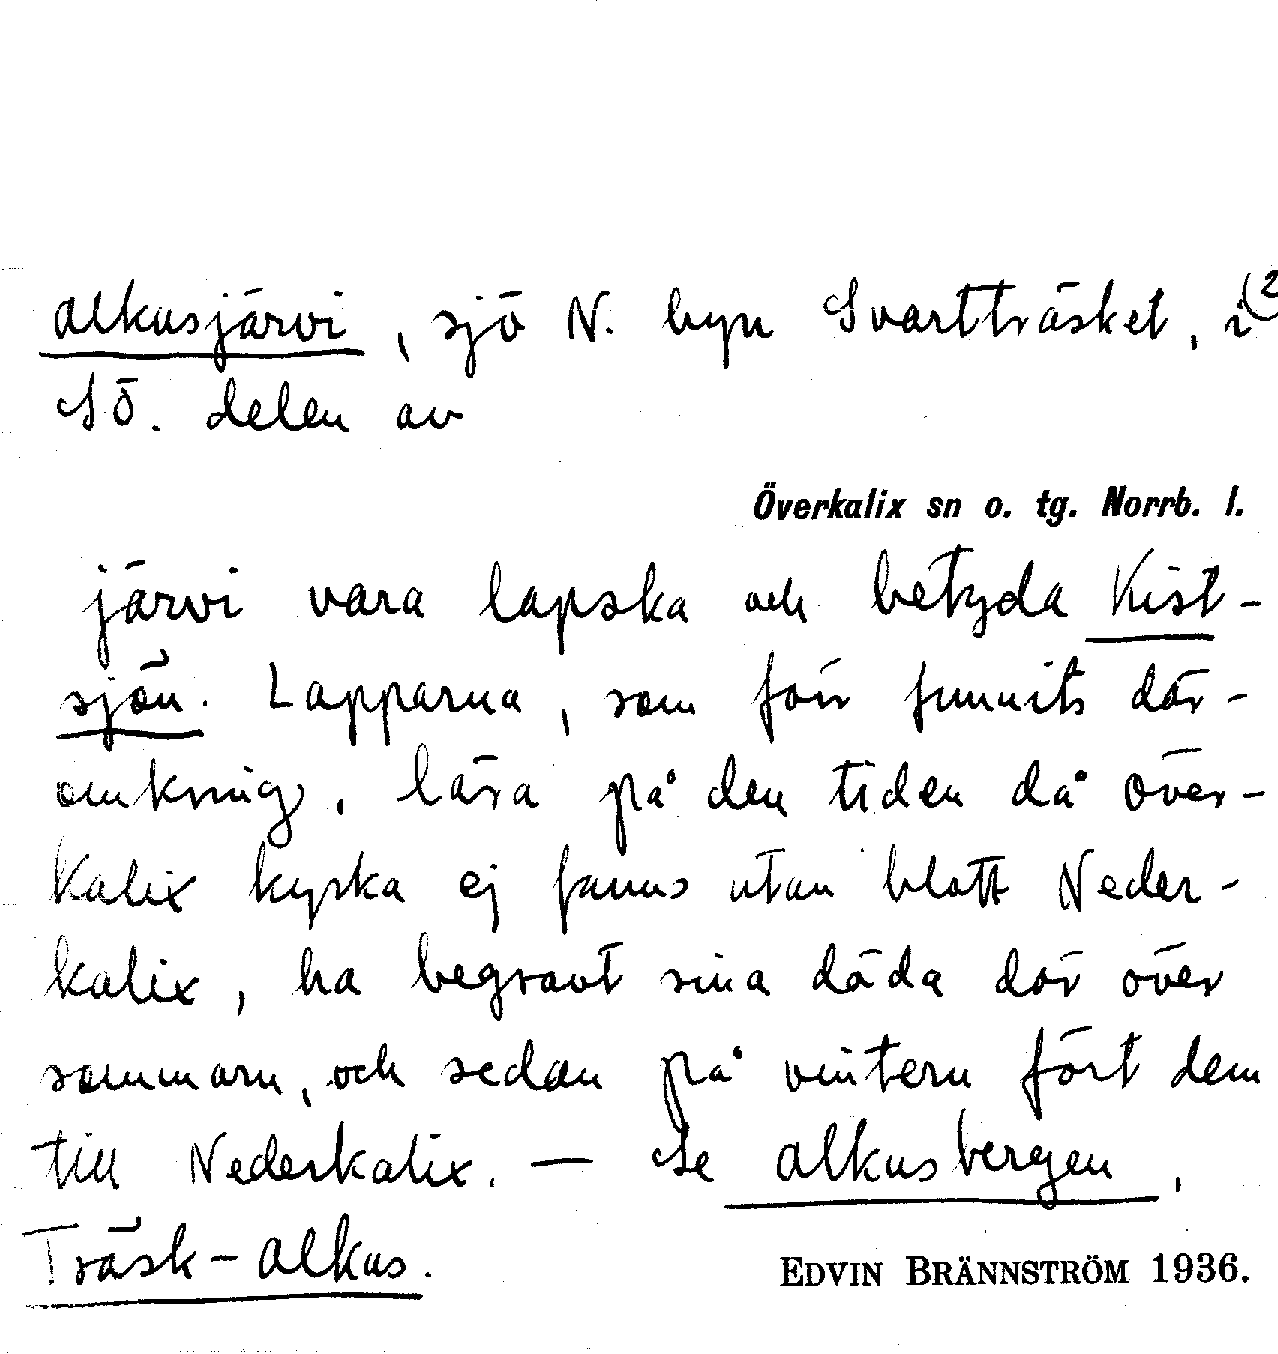 alkusjärvi, sjö N. byn Svartträsket, i (2
SÖ. delen av
Överkalix sn o. tg. Norrb. l.
järvi vara lapska och betyda Kist-
sjön. Lapparna, som förr funnits där-
omkring, lära på den tiden då Över-
kalix kyrka ej fanns utan blott Neder-
kalix, ha begravt sina döda där över
sommarn, och sedan på vintern fört dem
till Nederkalix. — Se alkusbergen,
Träsk-alkus.
EDVIN BRÄNNSTRÖM 1936.